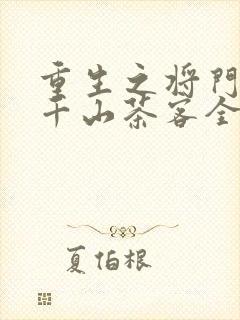 重生之将门
千山茶客全
夏伯根